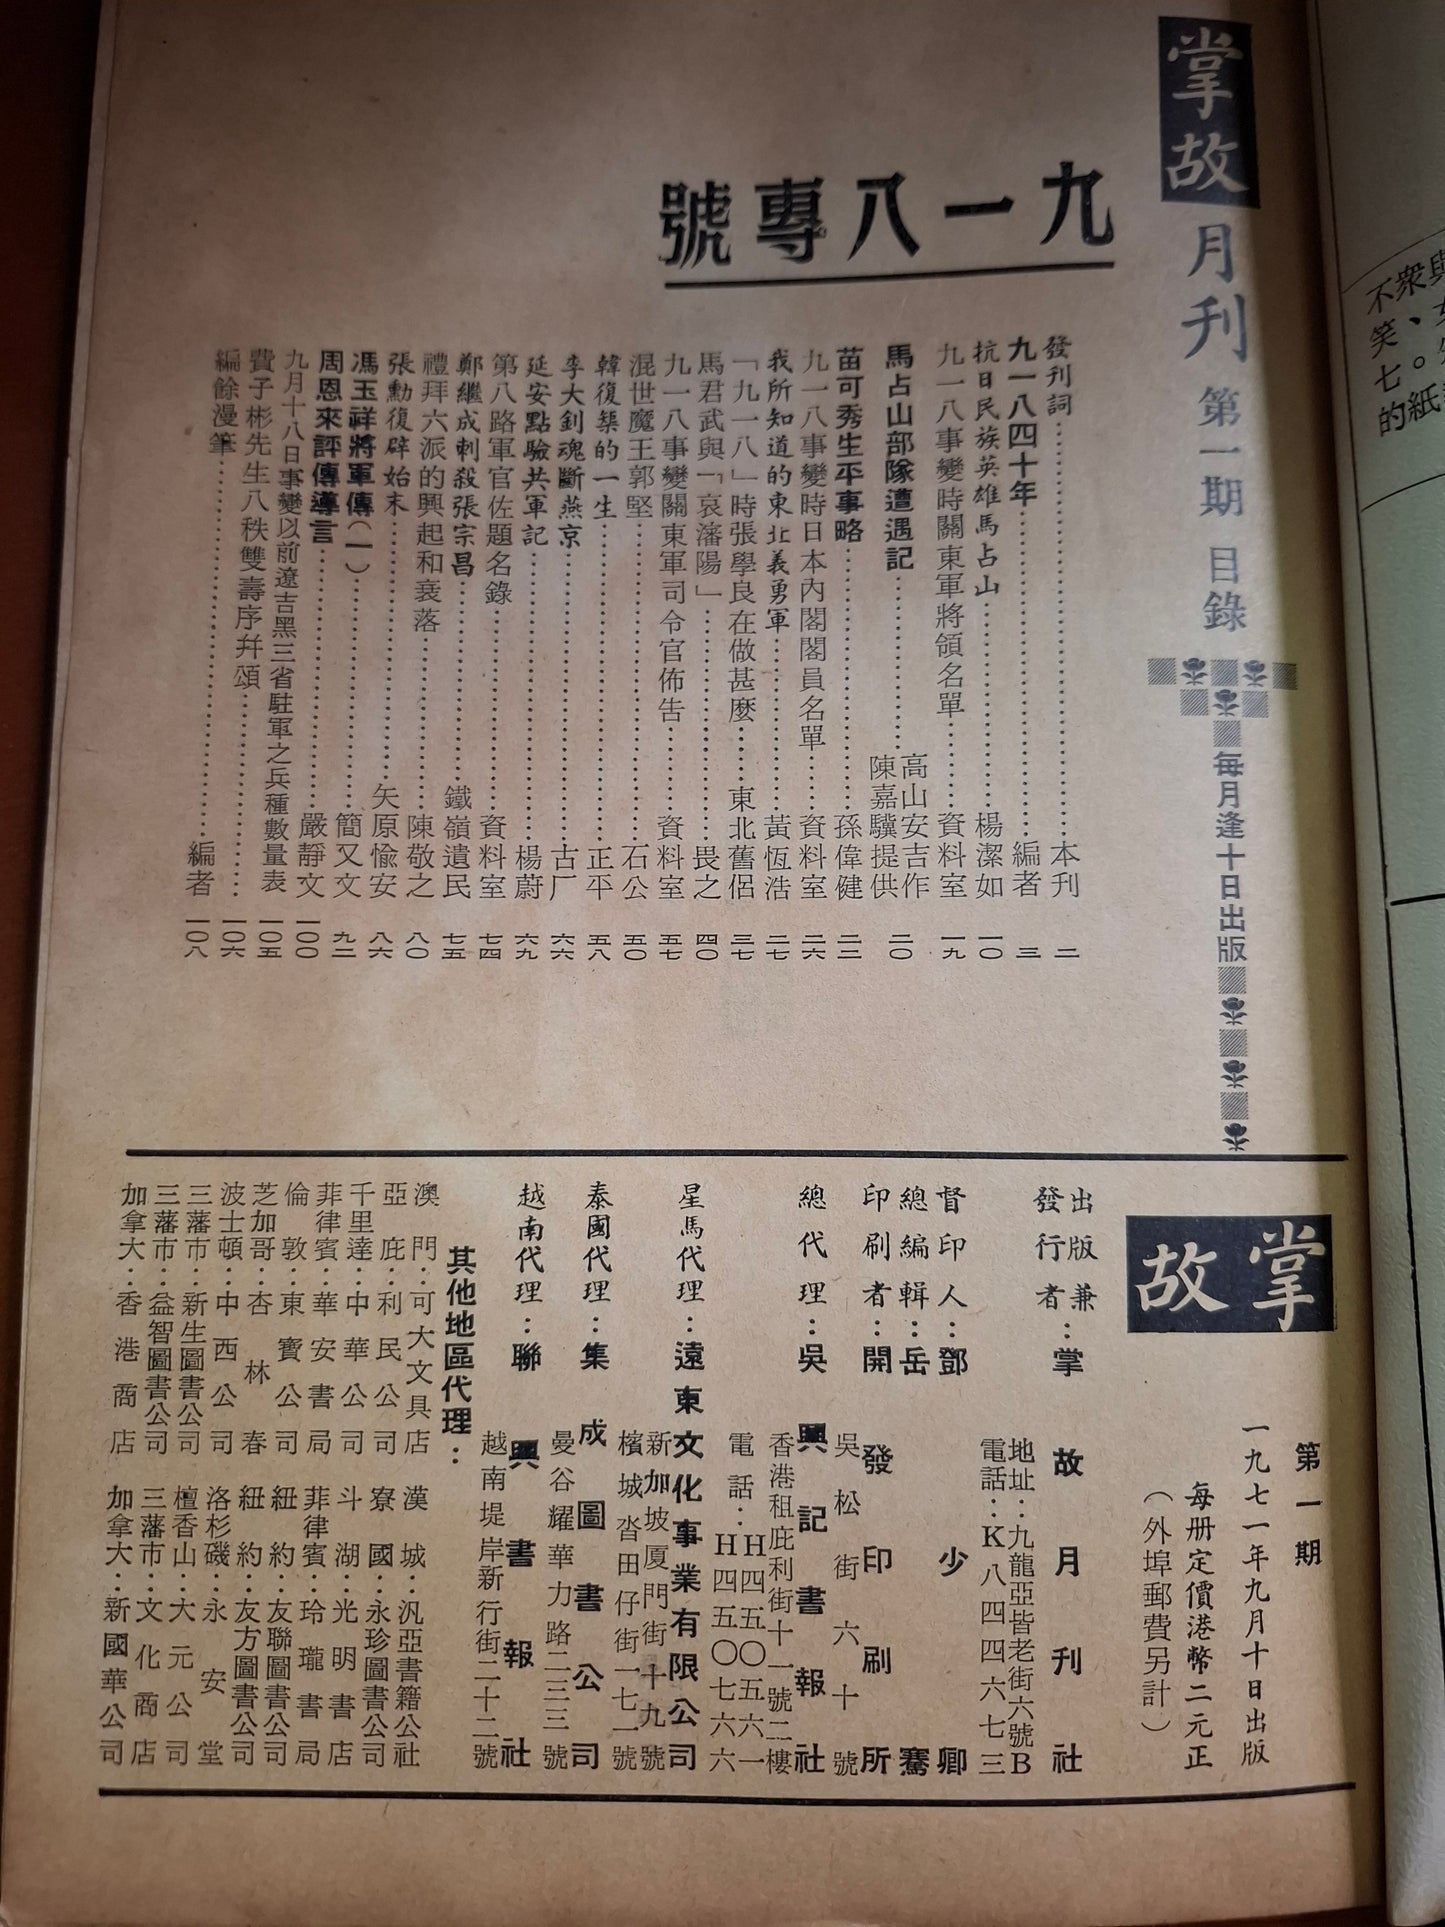 掌故
月刊 第一期 目錄
每月逢十日出版
九一八專號
發刊詞……本刊 二
九一八四十年……編者 三
抗日民族英雄馬占山……楊潔如 一〇
九一八事變時關東軍將領名單……資料室 一九
馬占山部隊遭遇記……高山安吉作 陳嘉驥提供 二〇
苗可秀生平事略……孫偉健 二二
九一八事變時日本內閣閣員名單……資料室 二六
我所知道的東北義勇軍……黃恆浩 二七
「九一八」時張學良在做甚麼……東北舊侶 三七
馬君武與「哀瀋陽」……畏之 四〇
九一八事變關東軍司令官佈告……資料室 五七
混世魔王郭堅……石公 五〇
韓復榘的一生……正平 五八
李大釗魂斷燕京……古厂 六六
延安點驗共軍記……楊蔚 六九
第八路軍官佐題名錄……資料室 七四
鄭繼成刺殺張宗昌……鐵嶺遺民 七五
禮拜六派的興起和衰落……陳敬之 八〇
張勳復辟始末……矢原愉安 八六
馮玉祥將軍傳(一)……簡又文 九二
周恩來評傳導言……嚴靜文 一〇〇
九月十八日事變以前遼吉黑三省駐軍之兵種數量表 一〇五
費子彬先生八秩雙壽序幷頌…… 一〇六
編餘漫筆……編者 一〇八
掌故
第一期
一九七一年九月十日出版
每册定價港幣二元正
(外埠郵費另計)
出版兼
發行者:掌故月刊社
地址:九龍亞皆老街六號B
電話:K八四四六七三
督印人:鄧少卿
總編輯:岳騫
印刷者:開發印刷所
吳松街六十號
總代理:吳興記書報社
香港租庇利街十一號二樓
電話:H四五〇五六一
H四五〇七六六
星馬代理:遠東文化事業有限公司
新加坡厦門街十九號
檳城沓田仔街一七一號
泰國代理:集成圖書公司
曼谷耀華力路二三三號
越南代理:聯興書報社
越南堤岸新行街二十二號
其他地區代理:
澳門:可大文具店 漢城:汎亞書籍公社
亞庇:利民公司 寮國:永珍圖書公司
千里達:中華公司 斗湖:光明書店
菲律賓:華安書局 菲律賓:玲瓏書局
倫敦:東寶公司 紐約:友聯圖書公司
芝加哥:杏林春 紐約:友方圖書公司
波士頓:中西公司 洛杉磯:永安堂
三藩市:新生圖書公司 檀香山:大元公司
三藩市:益智圖書公司 三藩市:文化商店
加拿大:香港商店 加拿大:新國華公司